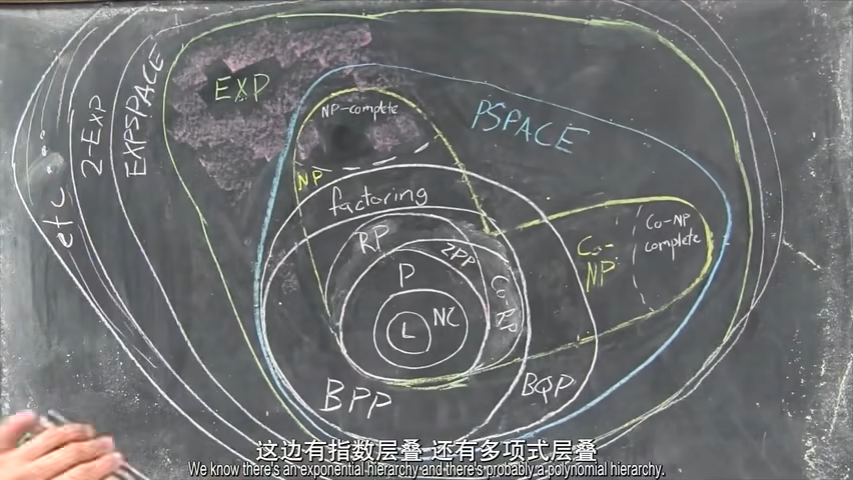 etc
2-EXP
EXPSPACE
EXP
NP-complete
PSPACE
NP
factoring
RP
ZPP
P
Co-RP
NC
L
Co-
NP
Co-NP
complete
BPP
BQP
这边有指数层叠 还有多项式层叠
We know there's an exponential hierarchy and there's probably a polynomial hierarchy.